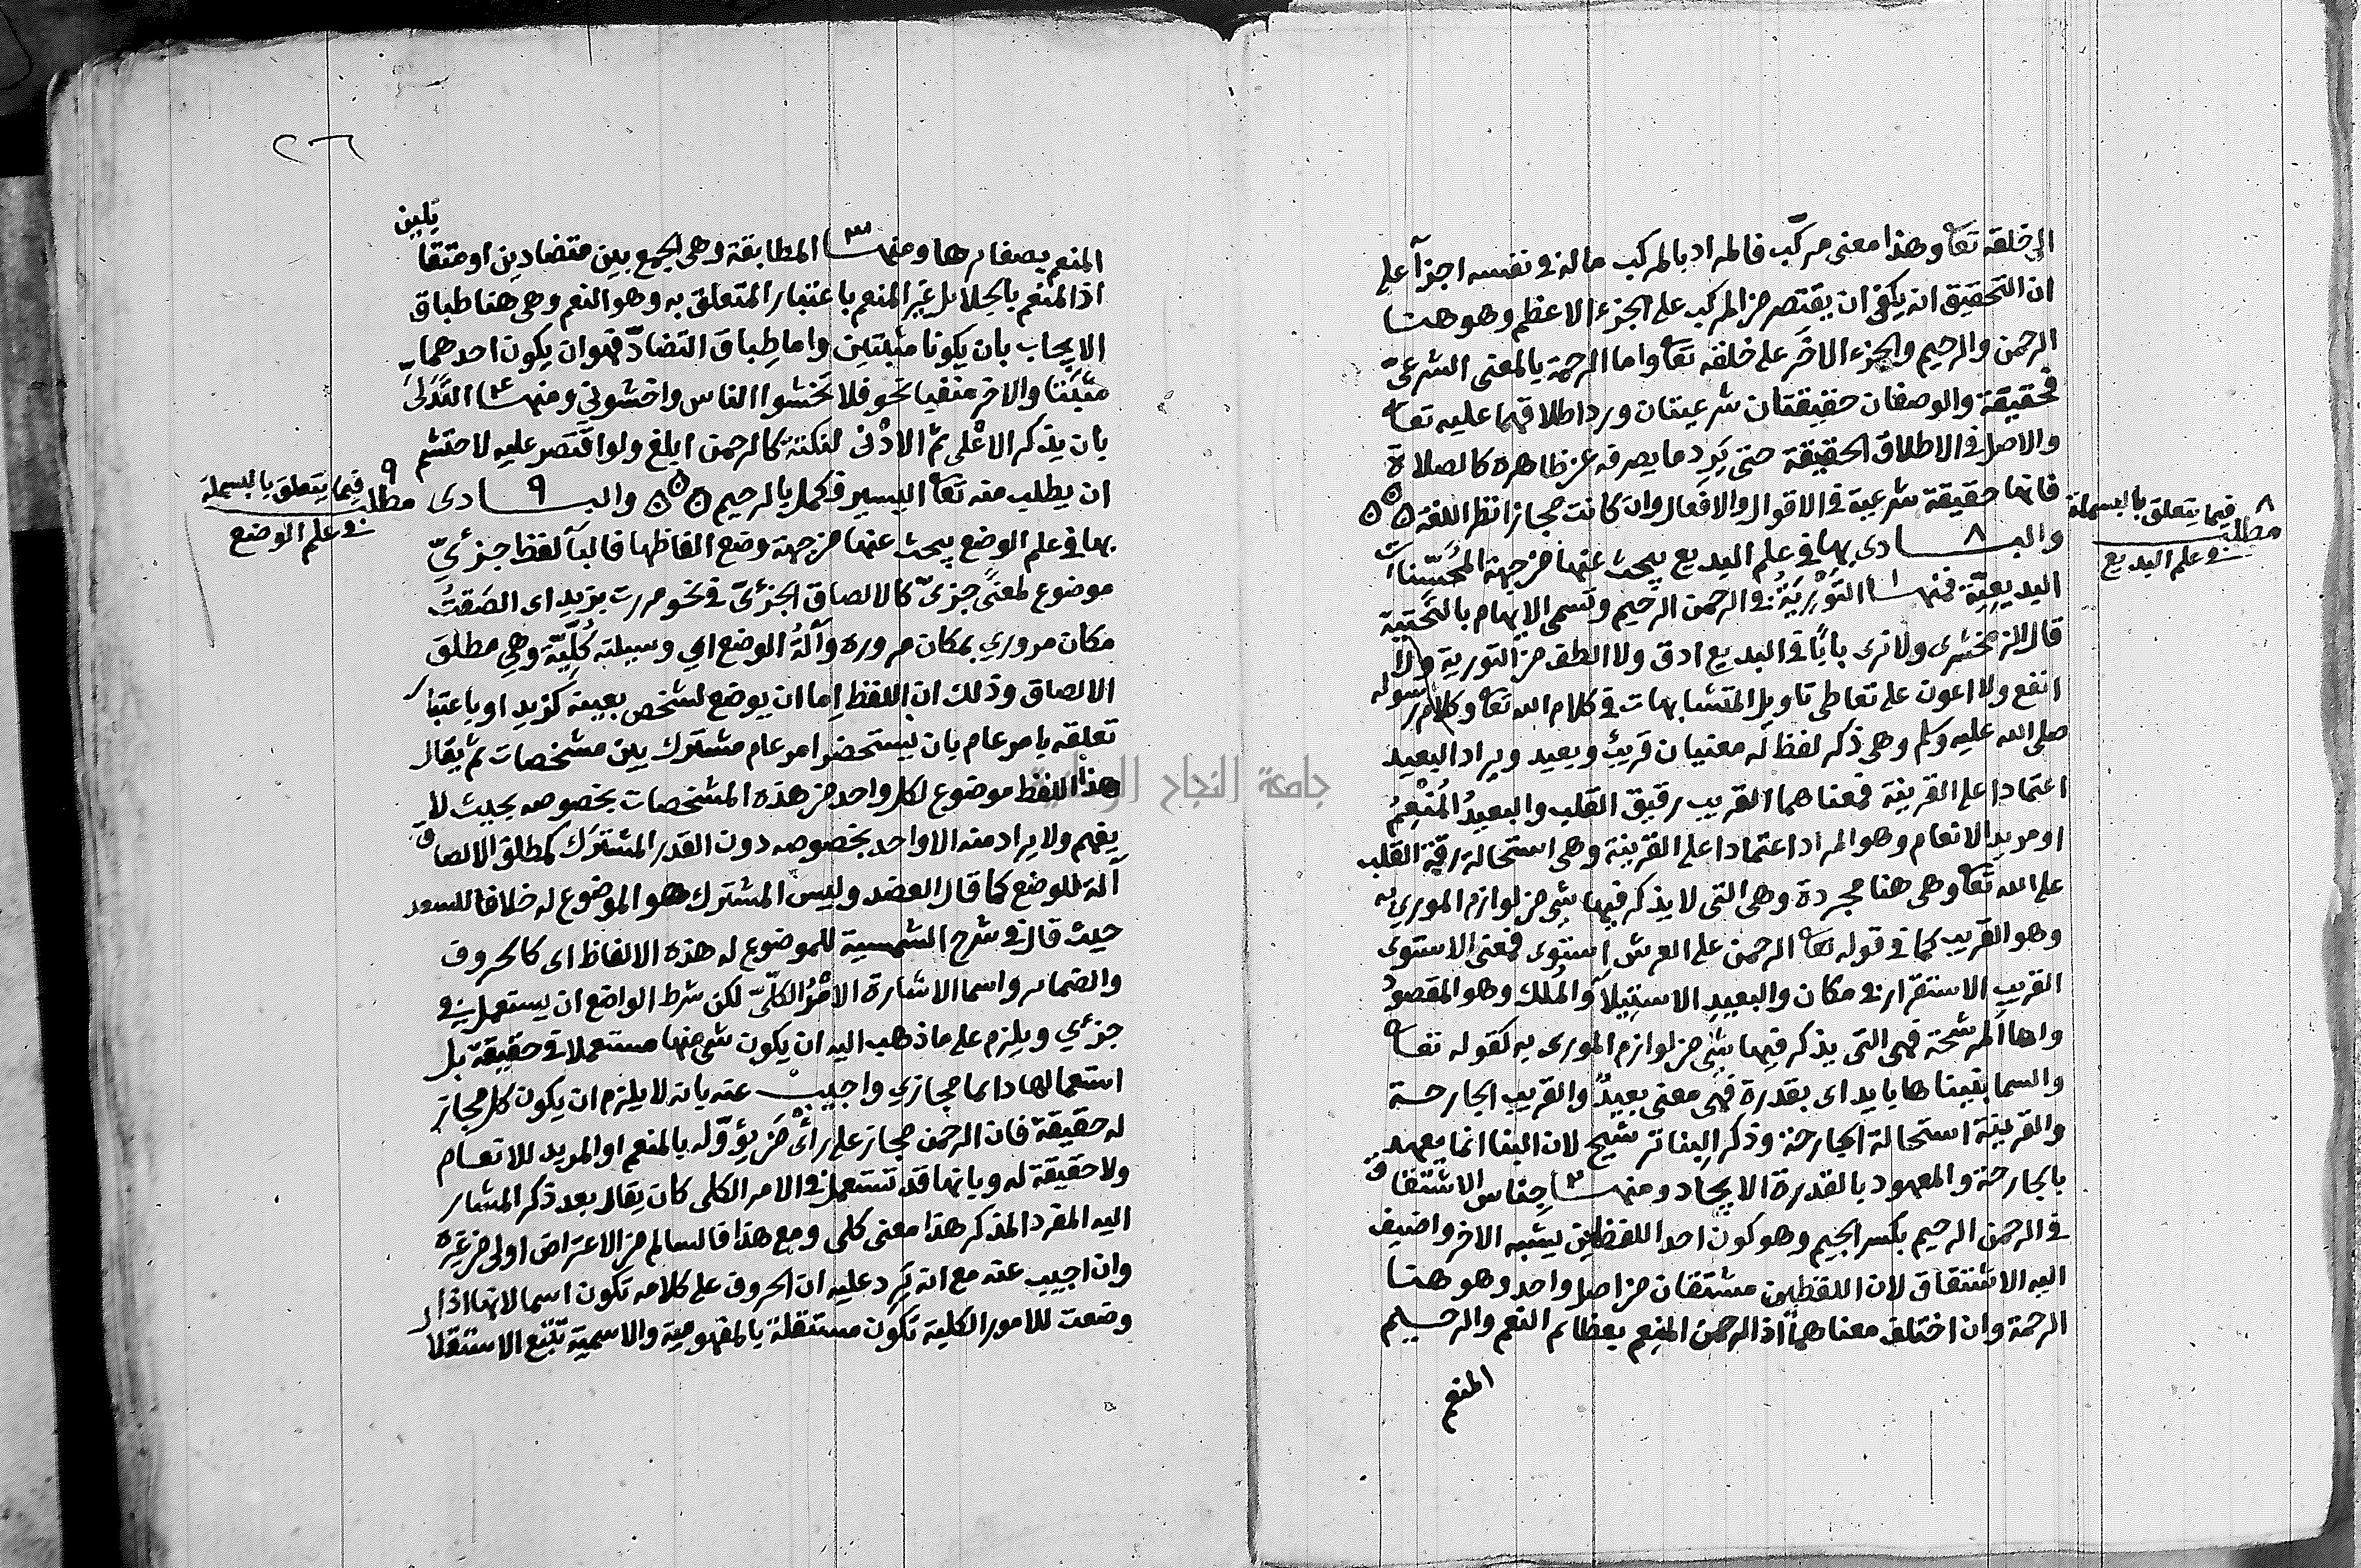 الى خلقه تعا وهذا معنى مركّب فالمراد بالمركب ماله في نفسه اجزآ على
ان التحقيق انه يكفي ان يقتصر من المركب على الجزء الاعظم وهو هنا
الرحمن والرحيم والجزء الاخر على خلقه تعا واما الرحمة بالمعنى الشرعيّ
فحقيقة والوصفان حقيقتان شرعيتان ورد اطلاقهما عليه تعا
والاصل في الاطلاق الحقيقة حتى يَرِد ما يصرفه عن ظاهره كالصلاة
فانها حقيقة شرعية في الاقوال والافعال وان كانت مجازا نظر اللغة ۞
والبـــادى ٨ بها في علم البديع يبحث عنها من جهة المُحَسِّنات
البديعيّة فمنهـا ١ التَّوْرِيَةُ في الرحمن الرحيم وتسمى الايهام بالتحتية
قال الزمخشرى ولا نرى بابًا في البديع ادق ولا الطف من التورية ولا
انفع ولا اعون على تعاطى تاويل المتشابهات في كلام الله تعا وكلام رسوله
صلى الله عليه وسلم وهى ذكر لفظ له معنيان قريب وبعيد ويراد البعيد
اعتمادا على القرينة فمعناهما القريب رقيق القلب والبعيدُ المُنْعِمُ
او مريد الانعام وهو المراد اعتمادا على القرينة وهى استحالة رقة القلب
على الله تعا وهى هنا مجردة وهى التى لا يذكر فيها شي من لوازم المورى به
وهو القريب كما في قوله تعا الرحمن على العرش استوى فمعنى الاستوى
القريب الاستقرار في مكان والبعيد الاستيلآ والملك وهو المقصود
واما المرشحة فهى التى يذكر فيها شي من لوازم المورى به كقوله تعا
والسما بنيناها بايد اى بقدرة فهى معنى بعيدٌ والقريب الجارحـة
والقرينة استحالة الجارحة وذكر البنا ترشيح لان البنا انما يعهد
بالجارحة والمعهود بالقدرة الايجاد ومنهـا ٢ جناس الاشتقاق
في الرحمن الرحيم بكسر الجيم وهو كون احد اللفظين يشبه الاخر واضيف
اليه الاشتقاق لان اللفظين مشتقان من اصل واحد وهو هنا
الرحمة وان اختلف معناهما اذ الرحمن المنعم بعظائم النعم والرحـيم
المنعم
٨
مطلب فيما يتعلق بالبسملة
في علم البديع
٢٦
المنعم بصغائرها ومنهـا ٣ المطابقة وهى الجمع بين متضادين او متقا
بلين
اذ المنعم بالجلائل غير المنعم باعتبار المتعلق به وهو النعم وهى هنا طباق
الايجاب بان يكونا مثبتين واما طباق التضادّ فهو ان يكون احدهما
مثبتا والاخر منفيا نحو فلا تخشوا الناس واخشوني ومنهـا ٤ التَّدَلى
بان يذكر الاعْلى ثم الادْنى لنكتة كالرحمن ابلغ ولو اقتَصَر عليه لاحتشم
ان يطلب منه تعا اليسير فكمل بالرحيم ۞ والبـــادى ٩
بها في علم الوضع يبحث عنها من جهة وضع الفاظها فالبآ لفظ جزئيّ
موضوع لمعنًى جزئىّ كالالصاق الجزئىّ في نحو مررت بزيد اى الصَقتُ
مكان مروري بمكان مروره وآلةُ الوضع اي وسيلته كُلِّيّة وهي مطلق
الالصاق وذلك ان اللفظ اما ان يوضع لشخص بعينه كزيد او باعتبار
تعلقه بامر عام بان يستحضر امر عام مشترك بين مشخصات ثم يقال
هذا اللفظ موضوع لكل واحد من هذه المشخصات بخصوصه بحيث لا
يفهم ولا يراد منه الا واحد بخصوصه دون القدر المشترك كمطلق الالصاق
آلة للوضع كما قال العضد وليس المشترك هو الموضوع له خلافا للسعد
حيث قال في شرح الشمسية للموضوع له هذه الالفاظ اى كالحروف
والضمائر واسما الاشارة الامْرُ الكلّىّ لكن شرط الواضع ان يستعمل في
جزئي ويلزم على ما ذهب اليه ان يكون شي منها مستعملا في حقيقة بل
استعمالها دايما مجازي واجيب عنه بانه لا يلزم ان يكون كل مجاز
له حقيقة فان الرحمن مجاز على رأْىِ مَن يؤوّله بالمنعم او المريد للانعـام
ولا حقيقة له وبانها قد تستعمل في الامر الكلى كان يقال بعد ذكر المشار
اليه المفرد المذكر هذا معنى كلى ومع هذا فالسالم من الاعتراض اولى من غيره
وان اجيب عنه مع انه يَرِد عليه ان الحروف على كلامه تكون اسما لانها اذا
وضعت للامور الكلية تكون مستقلة بالمفهومية والاسمية تتبع الاستقلا
٩
مطلب فيما يتعلق بالبسملة
في علم الوضع
جامعة النجاح الوطنية